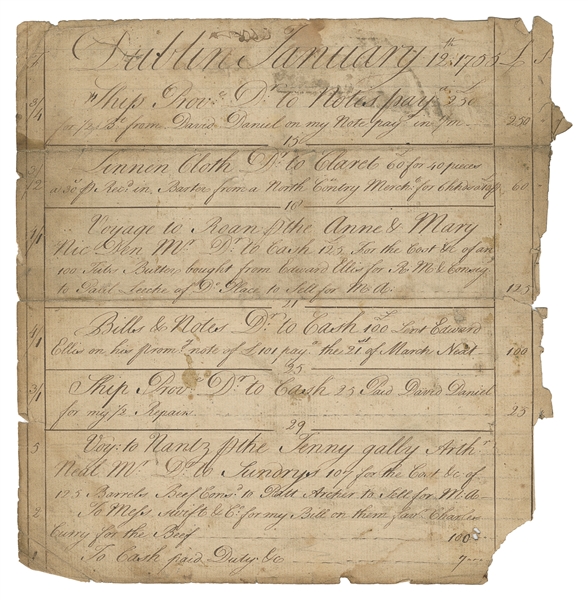 £ Dublin January 12th. 1755 £ S
3/4 Ship Prov:ce Dr. to Notes pay:e 250
for 1/2 Bo: from David Daniel on my Note pay:e in 250
15
3/12 Linnen Cloth Dr. to Claret 60 for 40 pieces
a 30 p Rec'd in Barter from a North Contry Merch:t for 60
18
4/1 Voyage to Roan p the Anne & Mary
Nic Don Mr. Dr. to Cash 125 For the Cost &c of an
100 Butter bought from Edward Ellis for R M & Consig
to Patt Leiche of Do. Place to Sell for M A 125
21
4/1 Bills & Notes Dr. to Cash 100 Lent Edward
Ellis on his prom:y note of £101 pay:e the 21st of March Next 100
25
3/1 Ship Prov:ce Dr. to Cash 25 Paid David Daniel
for my 1/2 Repairs 25
29
5 Voy: to Nantz p the Jenny gally Arth:r
Neal Mr. Dr. to Sundrys 107 for the Cost &c of
125 Barrels Beef Cons:d to Patt Archer to Sell for M A
2 To Mess Swift & Co: for my Bill on them fav:r Charles
Curry for the Beef 100
1 To Cash paid Duty &c 7